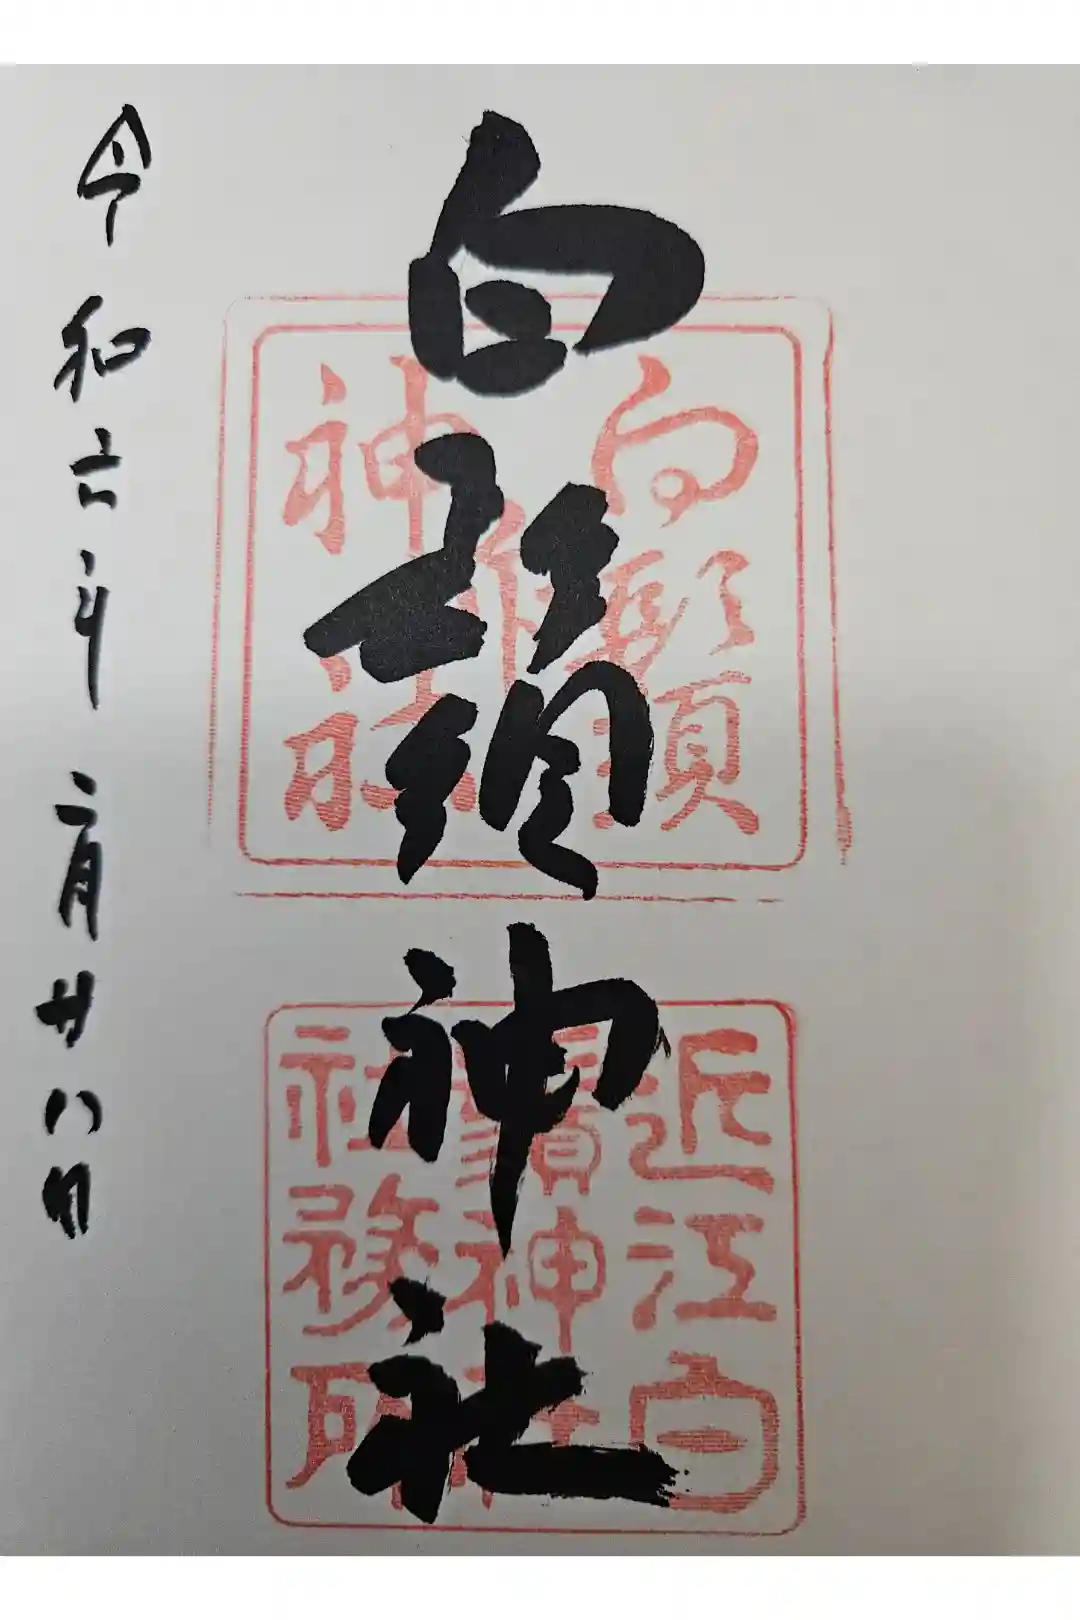 白鬚神社
白鬚
神社
近江白
鬚神社
社務所
令和六年二月廿八日